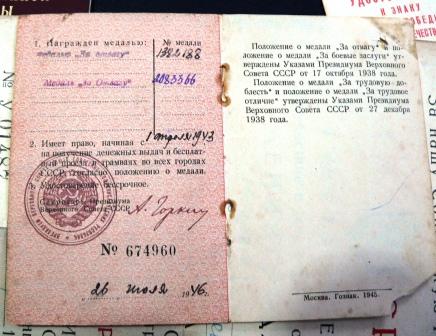 1. Награжден медалью:
№ медали
медалью „За отвагу"
Медаль „За Отвагу"
2083366
1 апреля 1943
2. Имеет право, начиная с
на получение денежных выдач и бесплат-
ный проезд в трамваях во всех городах
СССР согласно положению о медали.
3. Удостоверение бессрочное.
Секретарь Президиума
Верховного Совета СССР
А. Горкин
№ 674960
26 июля 1946 г.
Положение о медали „За отвагу" и по-
ложение о медали „За боевые заслуги" ут-
верждены Указами Президиума Верховного
Совета СССР от 17 октября 1938 года.
Положение о медали „За трудовую до-
блесть" и положение о медали „За трудовое
отличие" утверждены Указами Президиума
Верховного Совета СССР от 27 декабря
1938 года.
Москва. Гознак. 1945.